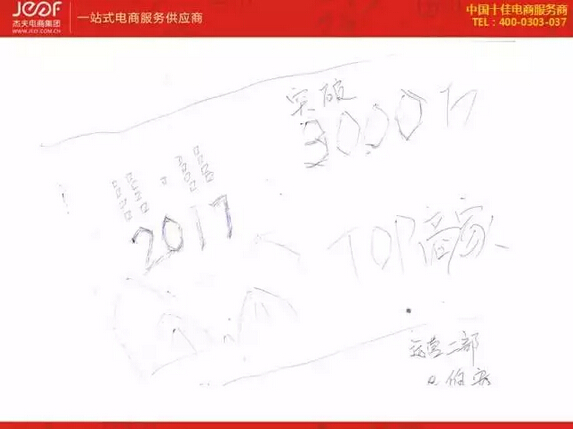 JEOF
杰夫电商集团
WWW.JEFF.COM.CN
一站式电商服务供应商
中国十佳电商服务商
TEL：400-0303-037
突破
3000万
2017
TOP商家
运营二部